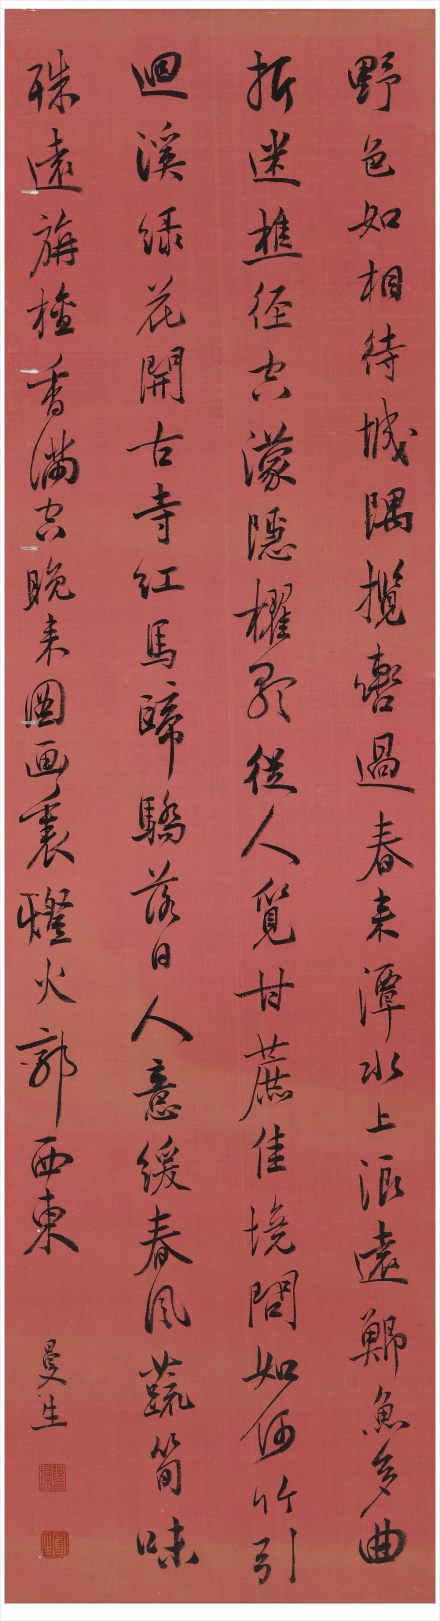 野色如相待城隅攬轡過春来潭水上浪遠鯽魚多曲
折迷樵径空濛隱櫂歌從人覓甘蔗佳境問如何竹引
迴溪緑花開古寺紅馬蹄驕落日人意緩春風蔬筍味
殊遠旃檀香滿空晚来圖画裏燈火郭西東
曼生